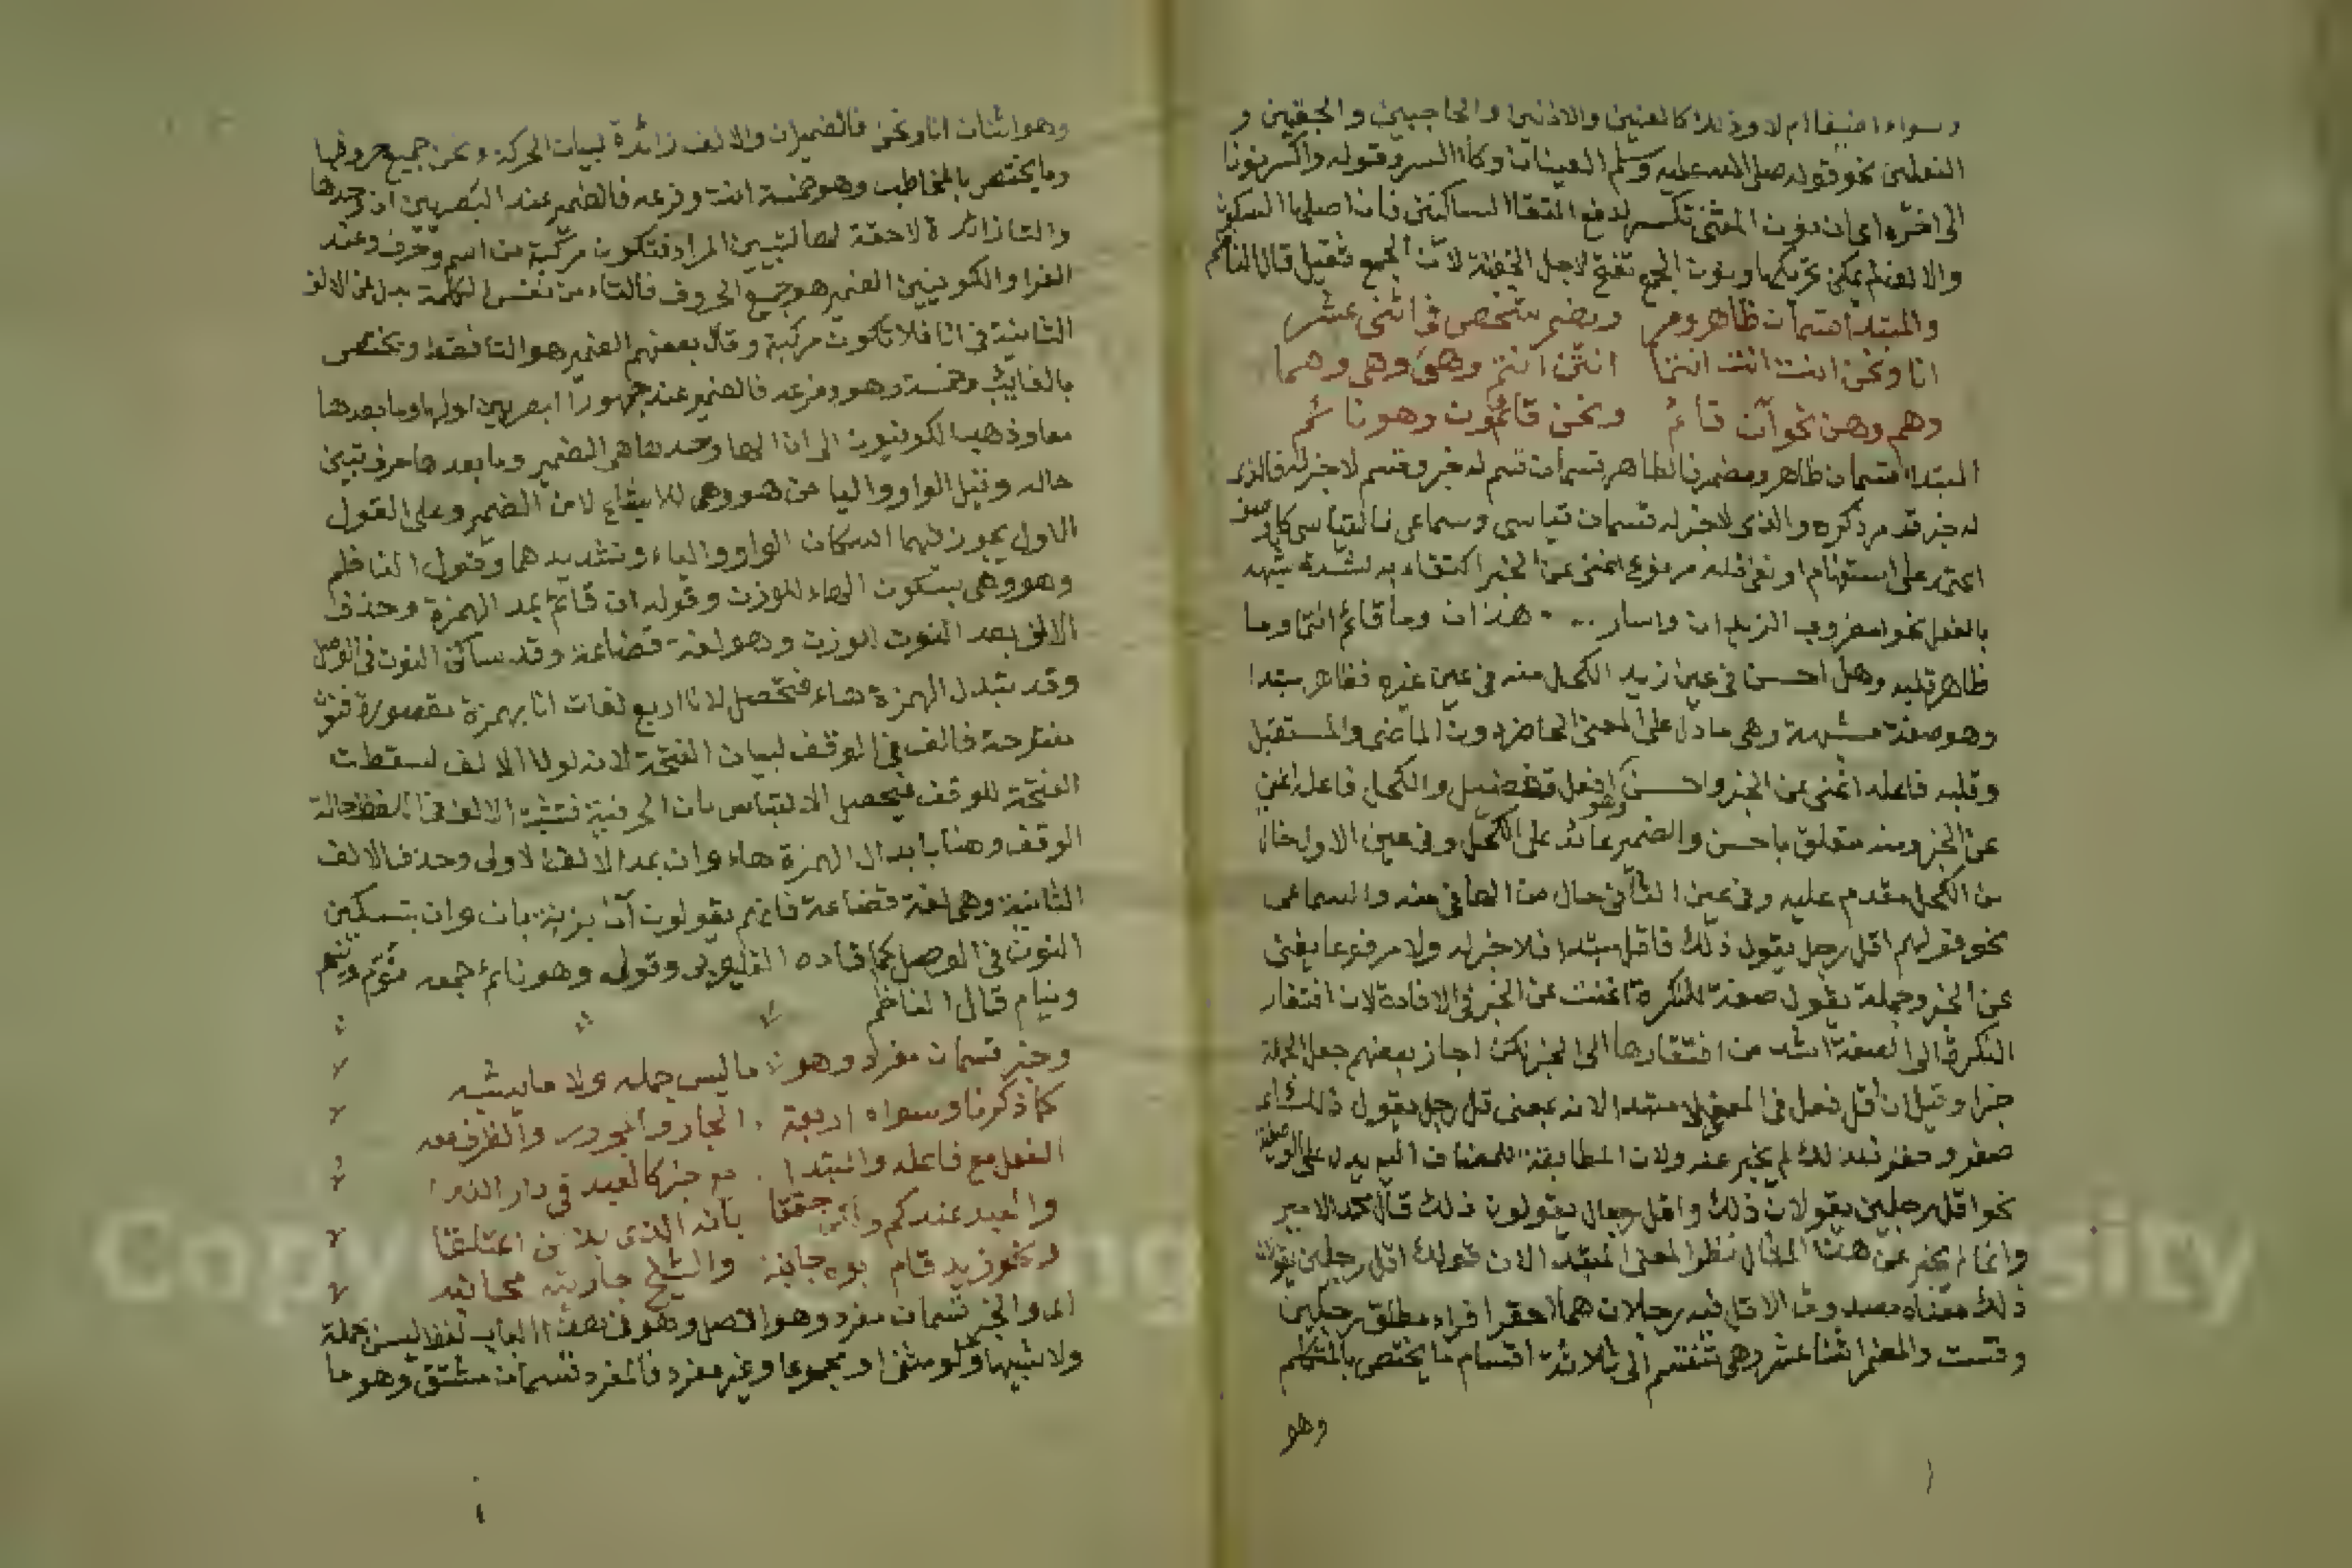 وسواء اضيفا ام لا وذلك كالعينين والاذنين والحاجبين والجفنين و
النعلين نحو قوله صلى الله عليه وسلم العينان وكاء السر وقوله واكسر نونا
الى اخره اى ان نون المثنى تكسر لدفع التقا الساكنين فان اصلها السكون
والالف لم يمكن تحريكها ونون الجمع تفتح لاجل الخفة لان الجمع ثقيل قال الناظم
والمبتدا قسمان ظاهر ومر ويضمر شخص فى اثنى عشر
انا ونحن انت انت انتما انتن انتم وهو وهى وهما
وهم وهن نحو آن قائم ونحن قائمون وهو نائم
المبتدا قسمان ظاهر ومضمر فالظاهر قسمان قسم له خبر وقسم لا خبر له فالذى
له خبر قد مر ذكره والذى لا خبر له قسمان قياسى وسماعى فالقياسى كل وصف
اعتمد على استفهام او نفى قلبه مرفوع اغنى عن الخبر اكتفاء به لشدة شبهه
بالفعل نحو امضروب الزيدان واسار هذان وما قائم انتما وما
ظاهر قلبه وهل احسن فى عين زيد الكحل منه فى عين غيره فظاهر مبتدا
وهو صفة مشبهة وهى ما دل على المعنى الحاضر دون الماضى والمستقبل
وقلبه فاعله اغنى عن الخبر واحسن افعل تفضيل والكحل فاعله اغنى
عن الخبر ومنه متعلق باحسن والضمير عائد على الكحل وفى عين الاول حال
وهو
من الكحل مقدم عليه وفى عين الثانى حال من الها فى منه والسماعى
نحو قولهم اقل رجل يقول ذلك فاقل مبتدا فلا خبر له ولا مرفوعا يغنى
عن الخبر وجملة يقول صفة للنكرة اغنت عن الخبر فى الافادة لان افتقار
النكرة الى الصفة اشد من افتقارها الى الخبر لكن اجاز بعضهم جعل الجملة
خبرا وقيل ان اقل فعل فى المعنى لا مبتدا لانه بمعنى قل رجل يقول ذلك
صغر وحقر فلذلك لم يخبر عنه ولان المطابقة للمضاف اليه يدل على الوصفية
نحو اقل رجلين يقولان ذلك واقل رجال يقولون ذلك قاله محمد الامير
وانما لم يخبر عن هذا المثال نظرا لمعنى المبتدا لان قولك اقل رجلين يقولان
ذلك معناه رجلان هما احقر افراد مطلق رجلين
وقست والمضمر اثنا عشر وهى تنقسم الى ثلاثة اقسام ما يختص بالمتكلم
وهو
وهو اثنان انا ونحن فالضمير ان والالف زائدة لبيان الحركة ونحن جميع حروفها
وما يختص بالمخاطب وهو خمسة انت وفرعه فالضمير عند البصريين ان وحدها
والتا زائدة لاحقة لها لتبيين المراد فتكون مركبة من اسم وحرف وعند
الفرا والكوفيين الضمير هو جميع الحروف فالتاء من نفس الكلمة بدل من الالف
الثانية فى انا فلا تكون مركبة وقال بعضهم الضمير هو التا فقط ويختص
بالغايب خمسة وهو وفرعه فالضمير عند جمهور البصريين اولها وما بعدها
معا وذهب الكوفيون الى ان الها وحدها هى الضمير وما بعدها حرف تبين
حاله وقيل الواو واليا من هو وهى للاشباع لا من الضمير وعلى القول
الاول يجوز فيهما اسكان الواو والياء وتشديدهما وقول الناظم
وهو وهى بسكون الهاء للوزن وقوله ان قائم بمد الهمزة وحذف
الالف بعد النون للوزن وهو لغة قضاعة وقد ساكن النون فى الوصل
وقد تبدل الهمزة هاء فتحصل لانا اربع لغات انا بهمزة مقصورة فنون
مفتوحة فالف فى الوقف لبيان الفتحة لانه لولا الالف لسقطت
الفتحة للوقف فيحصل الالتباس بان الحرفية فتثبت الالف فى اللفظ حالة
الوقف وهنا بابدال الهمزة هاء وان بمد الالف الاولى وحذف الالف
الثانية وهى لغة قضاعة فانهم يقولون آن بزنة بان وان بتسكين
النون فى الوصل كما افاده القليوبى وقوله وهو نائم جمعه نوم ونيم
ونيام قال الناظم
وخبر قسمان مفرد وهو ما ليس جمله ولا ما يشبه
كما ذكرنا وسواه اربعة الجار والمجرور والظرف معه
الفعل مع فاعله والمبتدا مع خبر كالعبد فى دار الندا
والعبد عندكم وايى حققا بانه الذى اعتلقا
ونحو زيد قام بوه جانبه والشيخ جاريته محاتبه
اى والخبر قسمان مفرد وهو الاصل وهو فى هذا الباب لفظ ليس جملة
ولا شبيها ولو مثنى او مجموعا وغير مفرد فالمفرد قسمان مشتق وهو ما